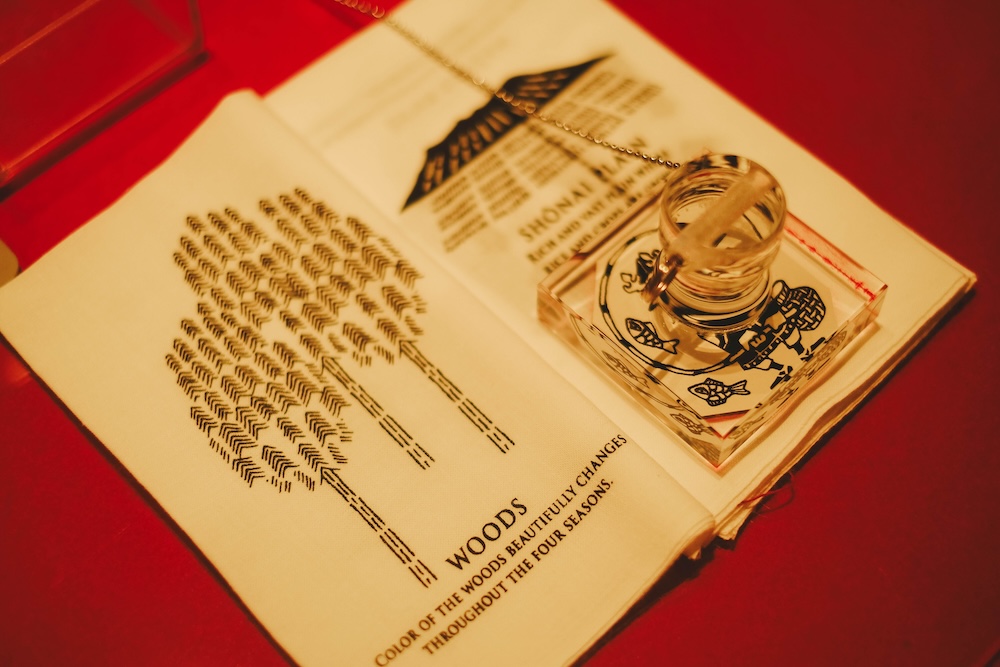 WOODS
COLOR OF THE WOODS BEAUTIFULLY CHANGES
THROUGHOUT THE FOUR SEASONS.
SHŌNAI PLAIN
RICH AND VAST
RICE AND